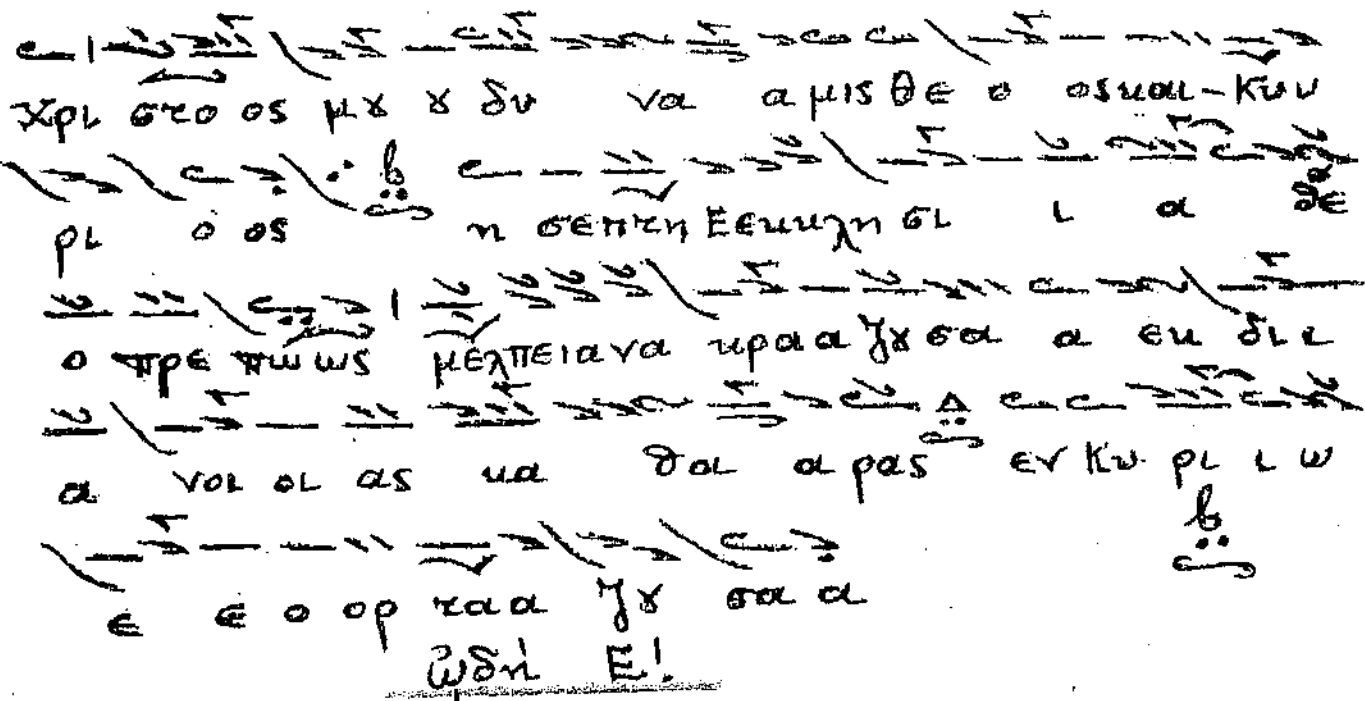 Χρι στο ος μȣ ȣ δυ να α μις θε ο ος και - Κυυ
ρι ο ος η σεπτη Εεκκλη σι ι α θε
ο πρε πω ως μελπειανα κρααζȣσα α εκ δι ι
α νοι οι ας κα θα α ρας εν Κυ ρι ι ω
ε ε ο ορ ταα ζȣ σα α
ᾠδή Ε!